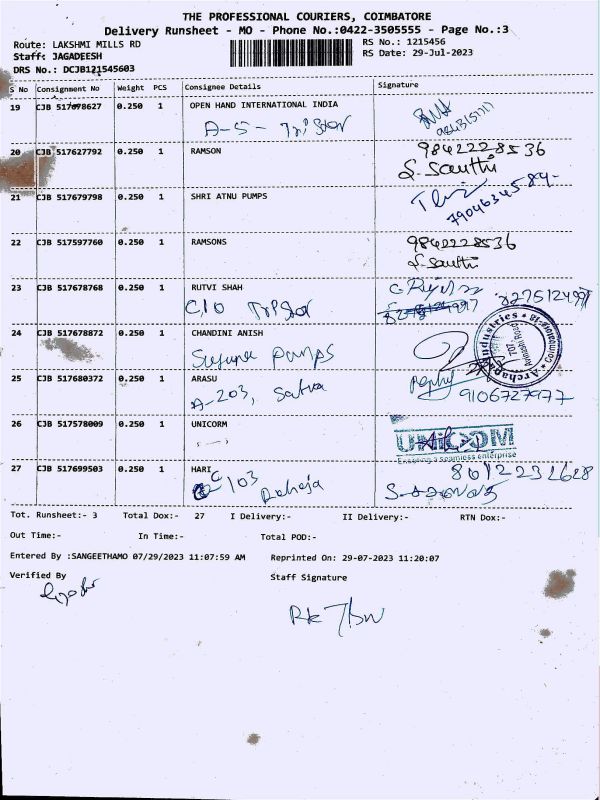 THE PROFESSIONAL COURIERS, COIMBATORE
Delivery Runsheet - MO - Phone No.:0422-3505555 - Page No.:3
Route: LAKSHMI MILLS RD
RS No.: 1215456
Staff: JAGADEESH
RS Date: 29-Jul-2023
DRS No.: DCJB121545603
S No Consignment No Weight PCS Consignee Details Signature
19 CJB 517698627 0.250 1 OPEN HAND INTERNATIONAL INDIA
A-5- Tristar
20 CJB 517627792 0.250 1 RAMSON 9842228536
S. Santhi
21 CJB 517679798 0.250 1 SHRI ATNU PUMPS
7904634589
22 CJB 517597760 0.250 1 RAMSONS 9842228536
S. Santhi
23 CJB 517678768 0.250 1 RUTVI SHAH
C/O Tristar 8275124997
24 CJB 517678872 0.250 1 CHANDINI ANISH
Suguna Pumps
Industries
Archana
707,
Avinashi Road
Coimbatore
25 CJB 517680372 0.250 1 ARASU
A-203, Satva 9106727977
26 CJB 517578009 0.250 1 UNICORM
UNICOM
Ensuring a seamless enterprise
27 CJB 517699503 0.250 1 HARI
C 103 Raheja
Tot. Runsheet:- 3 Total Dox:- 27 I Delivery:- II Delivery:- RTN Dox:-
Out Time:- In Time:- Total POD:-
Entered By :SANGEETHAMO 07/29/2023 11:07:59 AM Reprinted On: 29-07-2023 11:20:07
Verified By Staff Signature